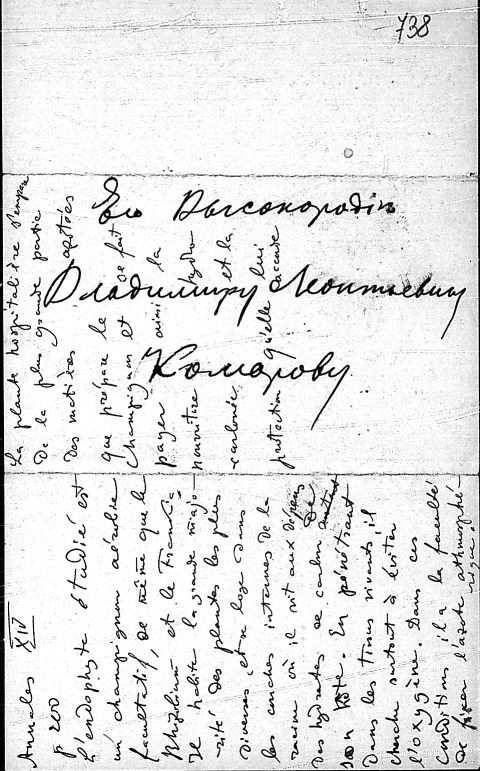 738
Его Высокородію
Владимиру Леонтьевичу
Комарову
Annales XIV
p 200
L'endophyte étudié est
un champignon aérobie
facultatif, de même que le
Rhizobium et le Frankia
Il habite la grande majo-
rité des plantes les plus
diverses et se loge dans
les couches internes de la
racine où il vit aux dépens
des hydrates de carbone de
son hôte. En pénétrant
dans les tissus vivants il
cherche surtout à éviter
l'oxygène. Dans ces
conditions il a la faculté
de fixer l'azote athmosphé-
rique.
La plante hospitalière s'empare
de la plus grande partie
des matières azotées
que prépare le
champignon et se fait
payer ainsi la
nourriture hydro
carbonée et la
protection qu'elle lui accorde